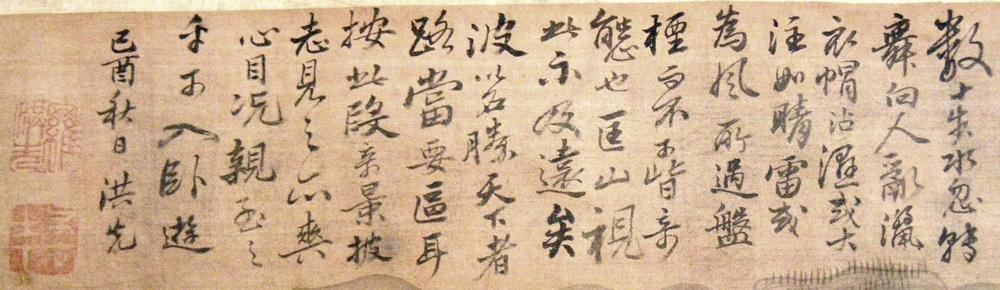 數十步水忽轉
舞向人亂灑
衣帽沾濕或大
注如晴雷或
為風所過盤
桓而不下皆奇
態也匡山視
此亦不及遠矣
彼以名勝天下者
路當要區耳
按此段景披
志見之亦爽
心目況親至之
乎可入臥遊
己酉秋日洪先